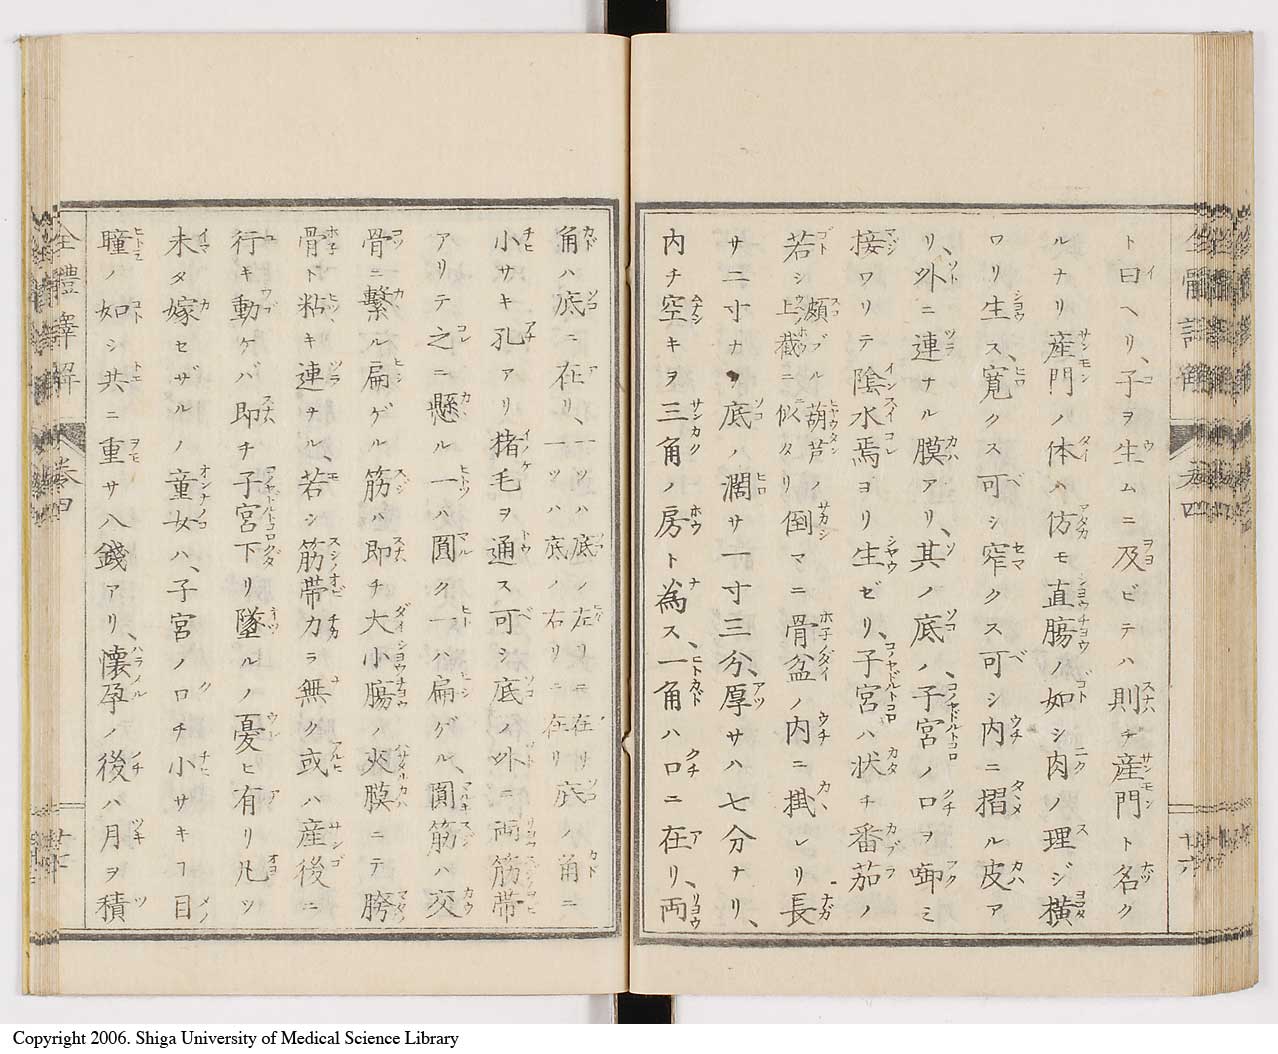 ト曰ヘリ、子ヲ生ムニ及ビテハ則チ産門ト名ク
ルナリ産門ノ体ハ仿モ直膓ノ如シ肉ノ理ジ橫
ワリ生ス、寛クス可シ窄クス可シ内ニ摺ル皮ア
リ、外ニ連ナル膜アリ、其ノ底ノ、子宮ノ口ヲ啣ミ
接ワリテ陰水焉ヨリ生ゼリ、子宮ハ状チ番茄ノ
若シ上截ニ似タリ倒マニ骨盆ノ内ニ掛レリ長
頗ブル葫芦ノ
サ二寸ナリ底ノ濶サ一寸三分、厚サハ七分ナリ、
内チ空キヲ三角ノ房ト為ス、一角ハ口ニ在リ、両
全體譯解 卷四
角ハ底ニ在リ、一ツハ底ノ左リニ在リ底ノ角ニ
一ツハ底ノ右リニ在リ
小サキ孔アリ猪毛ヲ通ス可シ底ノ外ニ両筋帯
アリテ之ニ懸ル一ハ圓ク一ハ扁ゲル、圓筋ハ交
骨ニ繋ル扁ゲル筋ハ即チ大小膓ノ夾膜ニテ胯
骨ト粘キ連ナル、若シ筋帯カラ無ク或ハ産後ニ
行キ動ケバ即チ子宮下リ墜ルノ憂ヒ有リ凡ツ
未タ嫁セザルノ童女ハ、子宮ノ口チ小サキヿ目
瞳ノ如シ共ニ重サ八錢アリ、懐孕ノ後ハ月ヲ積
全體譯解 卷四
Copyright 2006. Shiga University of Medical Science Library